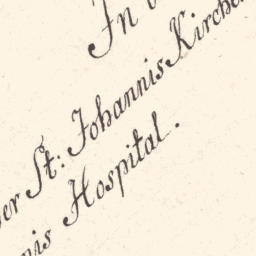 In
der St: Johannis Kirche
nis Hospital.